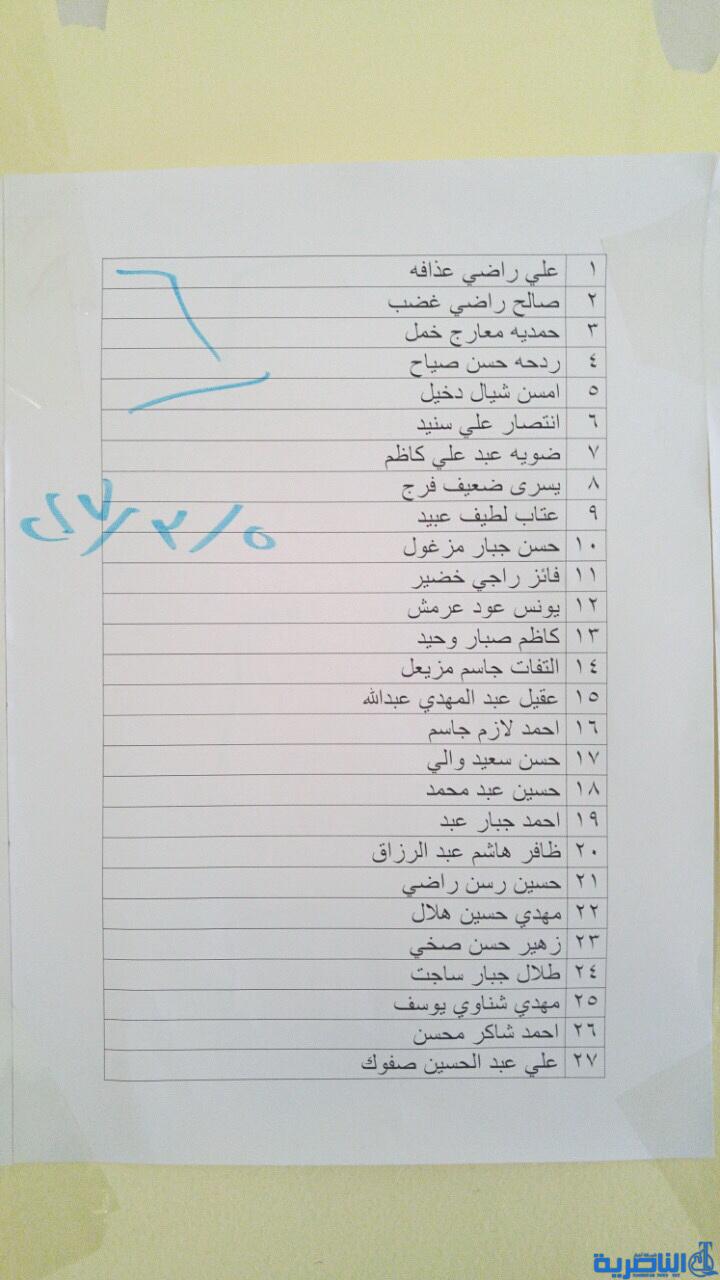 ١ علي راضي عذافه
٢ صالح راضي غضب
٣ حمديه معارج خمل
٤ ردحه حسن صياح
٥ امسن شيال دخيل
٦ انتصار علي سنيد
٧ ضويه عبد علي كاظم
٨ يسرى ضعيف فرج
٩ عتاب لطيف عبيد
١٠ حسن جبار مزغول
١١ فائز راجي خضير
١٢ يونس عود عرمش
١٣ كاظم صبار وحيد
١٤ التفات جاسم مزيعل
١٥ عقيل عبد المهدي عبدالله
١٦ احمد لازم جاسم
١٧ حسن سعيد والي
١٨ حسين عبد محمد
١٩ احمد جبار عبد
٢٠ ظافر هاشم عبد الرزاق
٢١ حسين رسن راضي
٢٢ مهدي حسين هلال
٢٣ زهير حسن صخي
٢٤ طلال جبار ساجت
٢٥ مهدي شناوي يوسف
٢٦ احمد شاكر محسن
٢٧ علي عبد الحسين صفوك
الناصرية